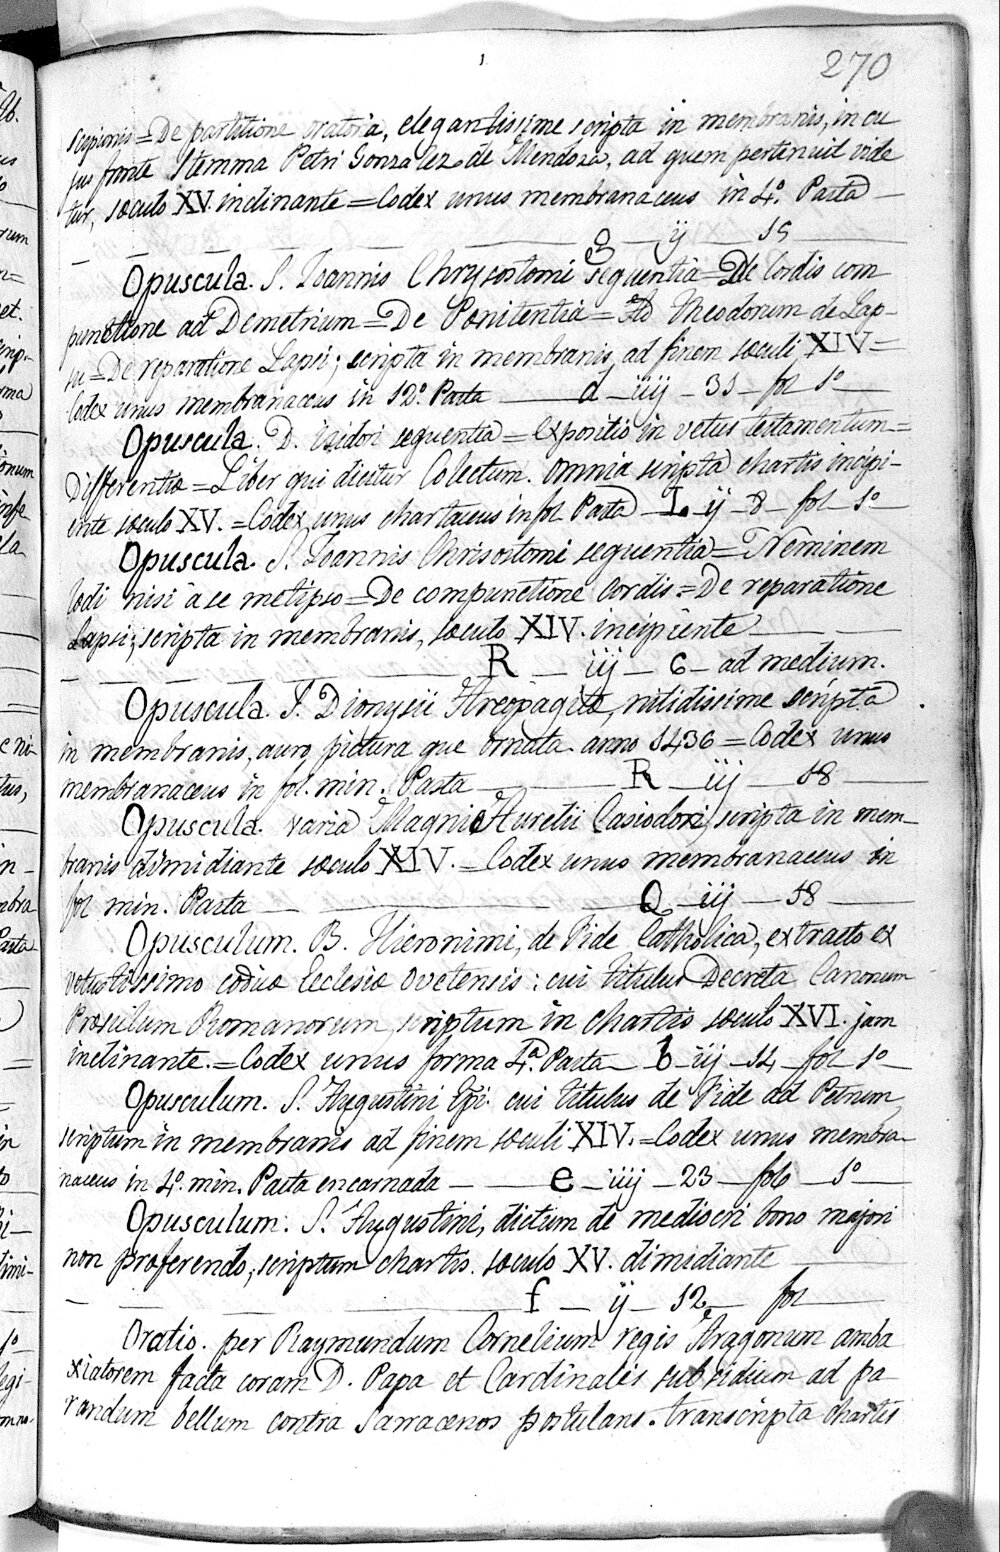 270
Scipionis = De partitione oratoria, elegantissime scripta in membranis, in cu
jus fronte stemma Petri Gonzalez de Mendoza, ad quem pertinuit vide
tur, sæculo XV. inclinante = Codex unus membranaceus in 4º. Pasta
g ij 15
Opuscula. S. Ioannis Chrysostomi sequentia = De Cordis com
punctione ad Demetrium = De Pœnitentia = Ad Theodorum de Lap-
su = De reparatione Lapsi; scripta in membranis, ad finem sæculi XIV =
Codex unus membranaceus in 12º. Pasta d iiij 31 fol 1º
Opuscula. D. Isidori sequentia = Expositio in vetus testamentum =
Differentiæ = Liber qui dicitur Colectum. omnia scripta chartis incipi-
ente sæculo XV. = Codex unus chartaceus in fol. Pasta L ij 8 fol 1º
Opuscula. S. Ioannis Chrisostomi sequentia = Neminem
lædi nisi à se metipso = De compunctione cordis = De reparatione
Lapsi; scripta in membranis, sæculo XIV. incipiente
R iij 6 ad medium.
Opuscula. S. Dionysii Areopagitæ, nitidissime scripta
in membranis, auro pictura que ornata anno 1436 = Codex unus
membranaceus in fol. min. Pasta R iij 18
Opuscula. varia Magni Aurelii Casiodori, scripta in mem-
branis dimidiante sæculo XIV. = Codex unus membranaceus in
fol min. Pasta Q iij 18
Opusculum. B. Hieronimi, de Fide Catholica, extracto ex
vetustissimo codice Ecclesiæ Ovetensis: cui titulus Decreta Canonum
Præsulum Romanorum, scriptum in chartis sæculo XVI. jam
inclinante. = Codex unus forma 4ª. Pasta b iij 14 fol 1º
Opusculum. S. Augustini Epi. cui titulus de Fide ad Petrum,
scriptum in membranis ad finem sæculi XIV. = Codex unus membra-
naceus in 4º. min. Pasta encarnada e iiij 23 fol 1º
Opusculum. S. Augustini, dictum de mediocri bono majori
non præferendo, scriptum chartis. sæculo XV. dimidiante
f ij 12 fol
Oratio. per Raymundum Cornelium regis Aragonum amba
xiatorem facta coram D. Papa et Cardinales subsidium ad pa
randum bellum contra Sarracenos postulans. transcripta chartis